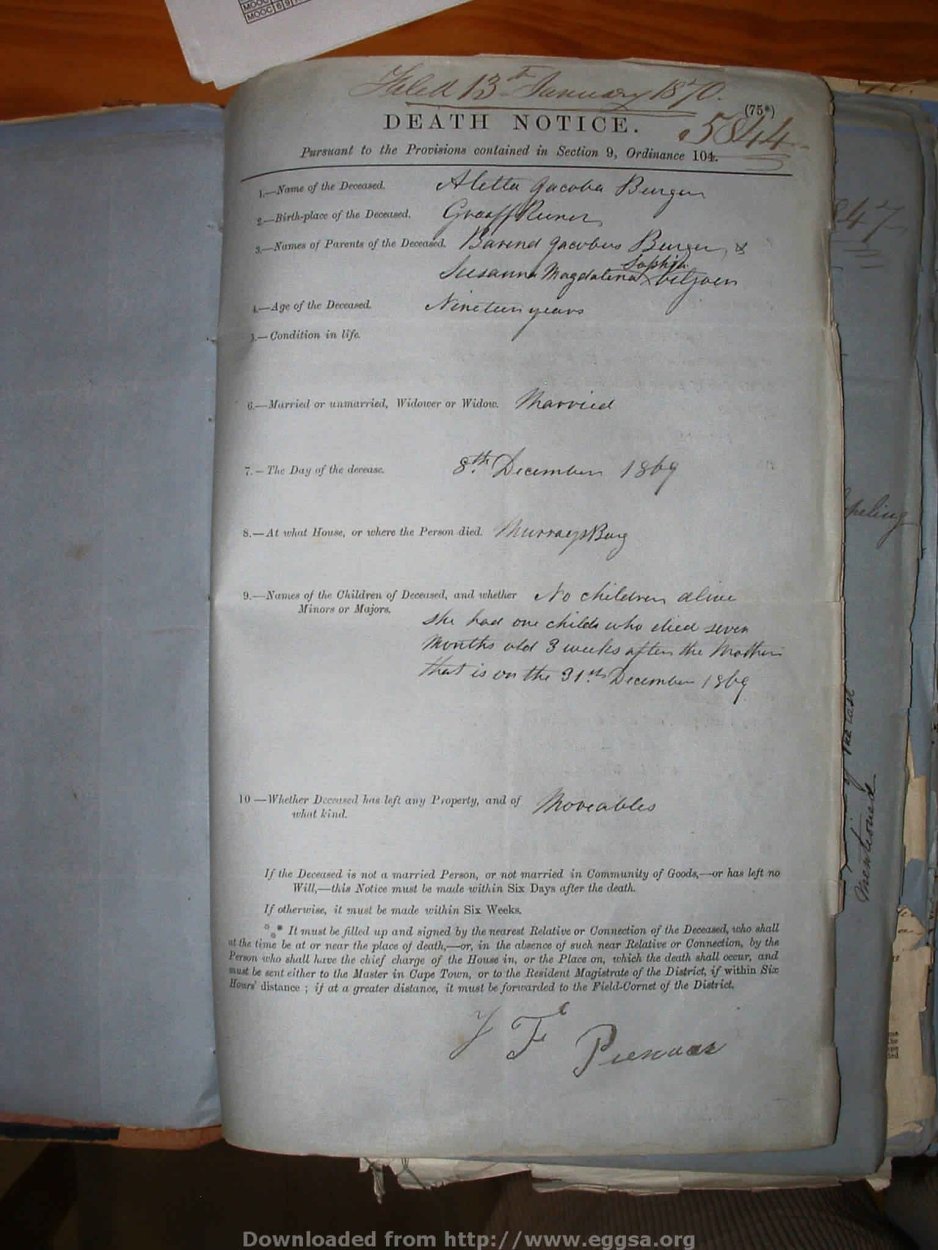 MOOC
MOOC 6 9
Filed 13th January 1870.
(75*)
DEATH NOTICE.
5844
Pursuant to the Provisions contained in Section 9, Ordinance 104.
1.—Name of the Deceased. Aletta Jacoba Burger
2.—Birth-place of the Deceased. Graaff Reinet
3.—Names of Parents of the Deceased. Barend Jacobus Burger &
Sophia
Susanna Magdalena x Viljoen
4.—Age of the Deceased. Nineteen years
5.—Condition in life.
6.—Married or unmarried, Widower or Widow. Married
7.—The Day of the decease. 8th December 1869
8.—At what House, or where the Person died. MurraysBurg
9.—Names of the Children of Deceased, and whether No children alive
Minors or Majors.
she had one childe who died seven
months old 3 weeks after the Mother
that is on the 31st December 1869
10—Whether Deceased has left any Property, and of Moveables
what kind.
If the Deceased is not a married Person, or not married in Community of Goods,—or has left no
Will,—this Notice must be made within Six Days after the death.
If otherwise, it must be made within Six Weeks.
*** It must be filled up and signed by the nearest Relative or Connection of the Deceased, who shall
at the time be at or near the place of death,—or, in the absence of such near Relative or Connection, by the
Person who shall have the chief charge of the House in, or the Place on, which the death shall occur, and
must be sent either to the Master in Cape Town, or to the Resident Magistrate of the District, if within Six
Hours' distance ; if at a greater distance, it must be forwarded to the Field-Cornet of the District.
J F Pienaar
847
mentioned
Downloaded from http://www.eggsa.org